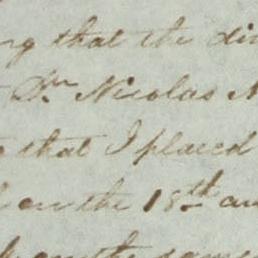 ng that the di
Dn Nicolas
that I placed
on the 18th an
on the same